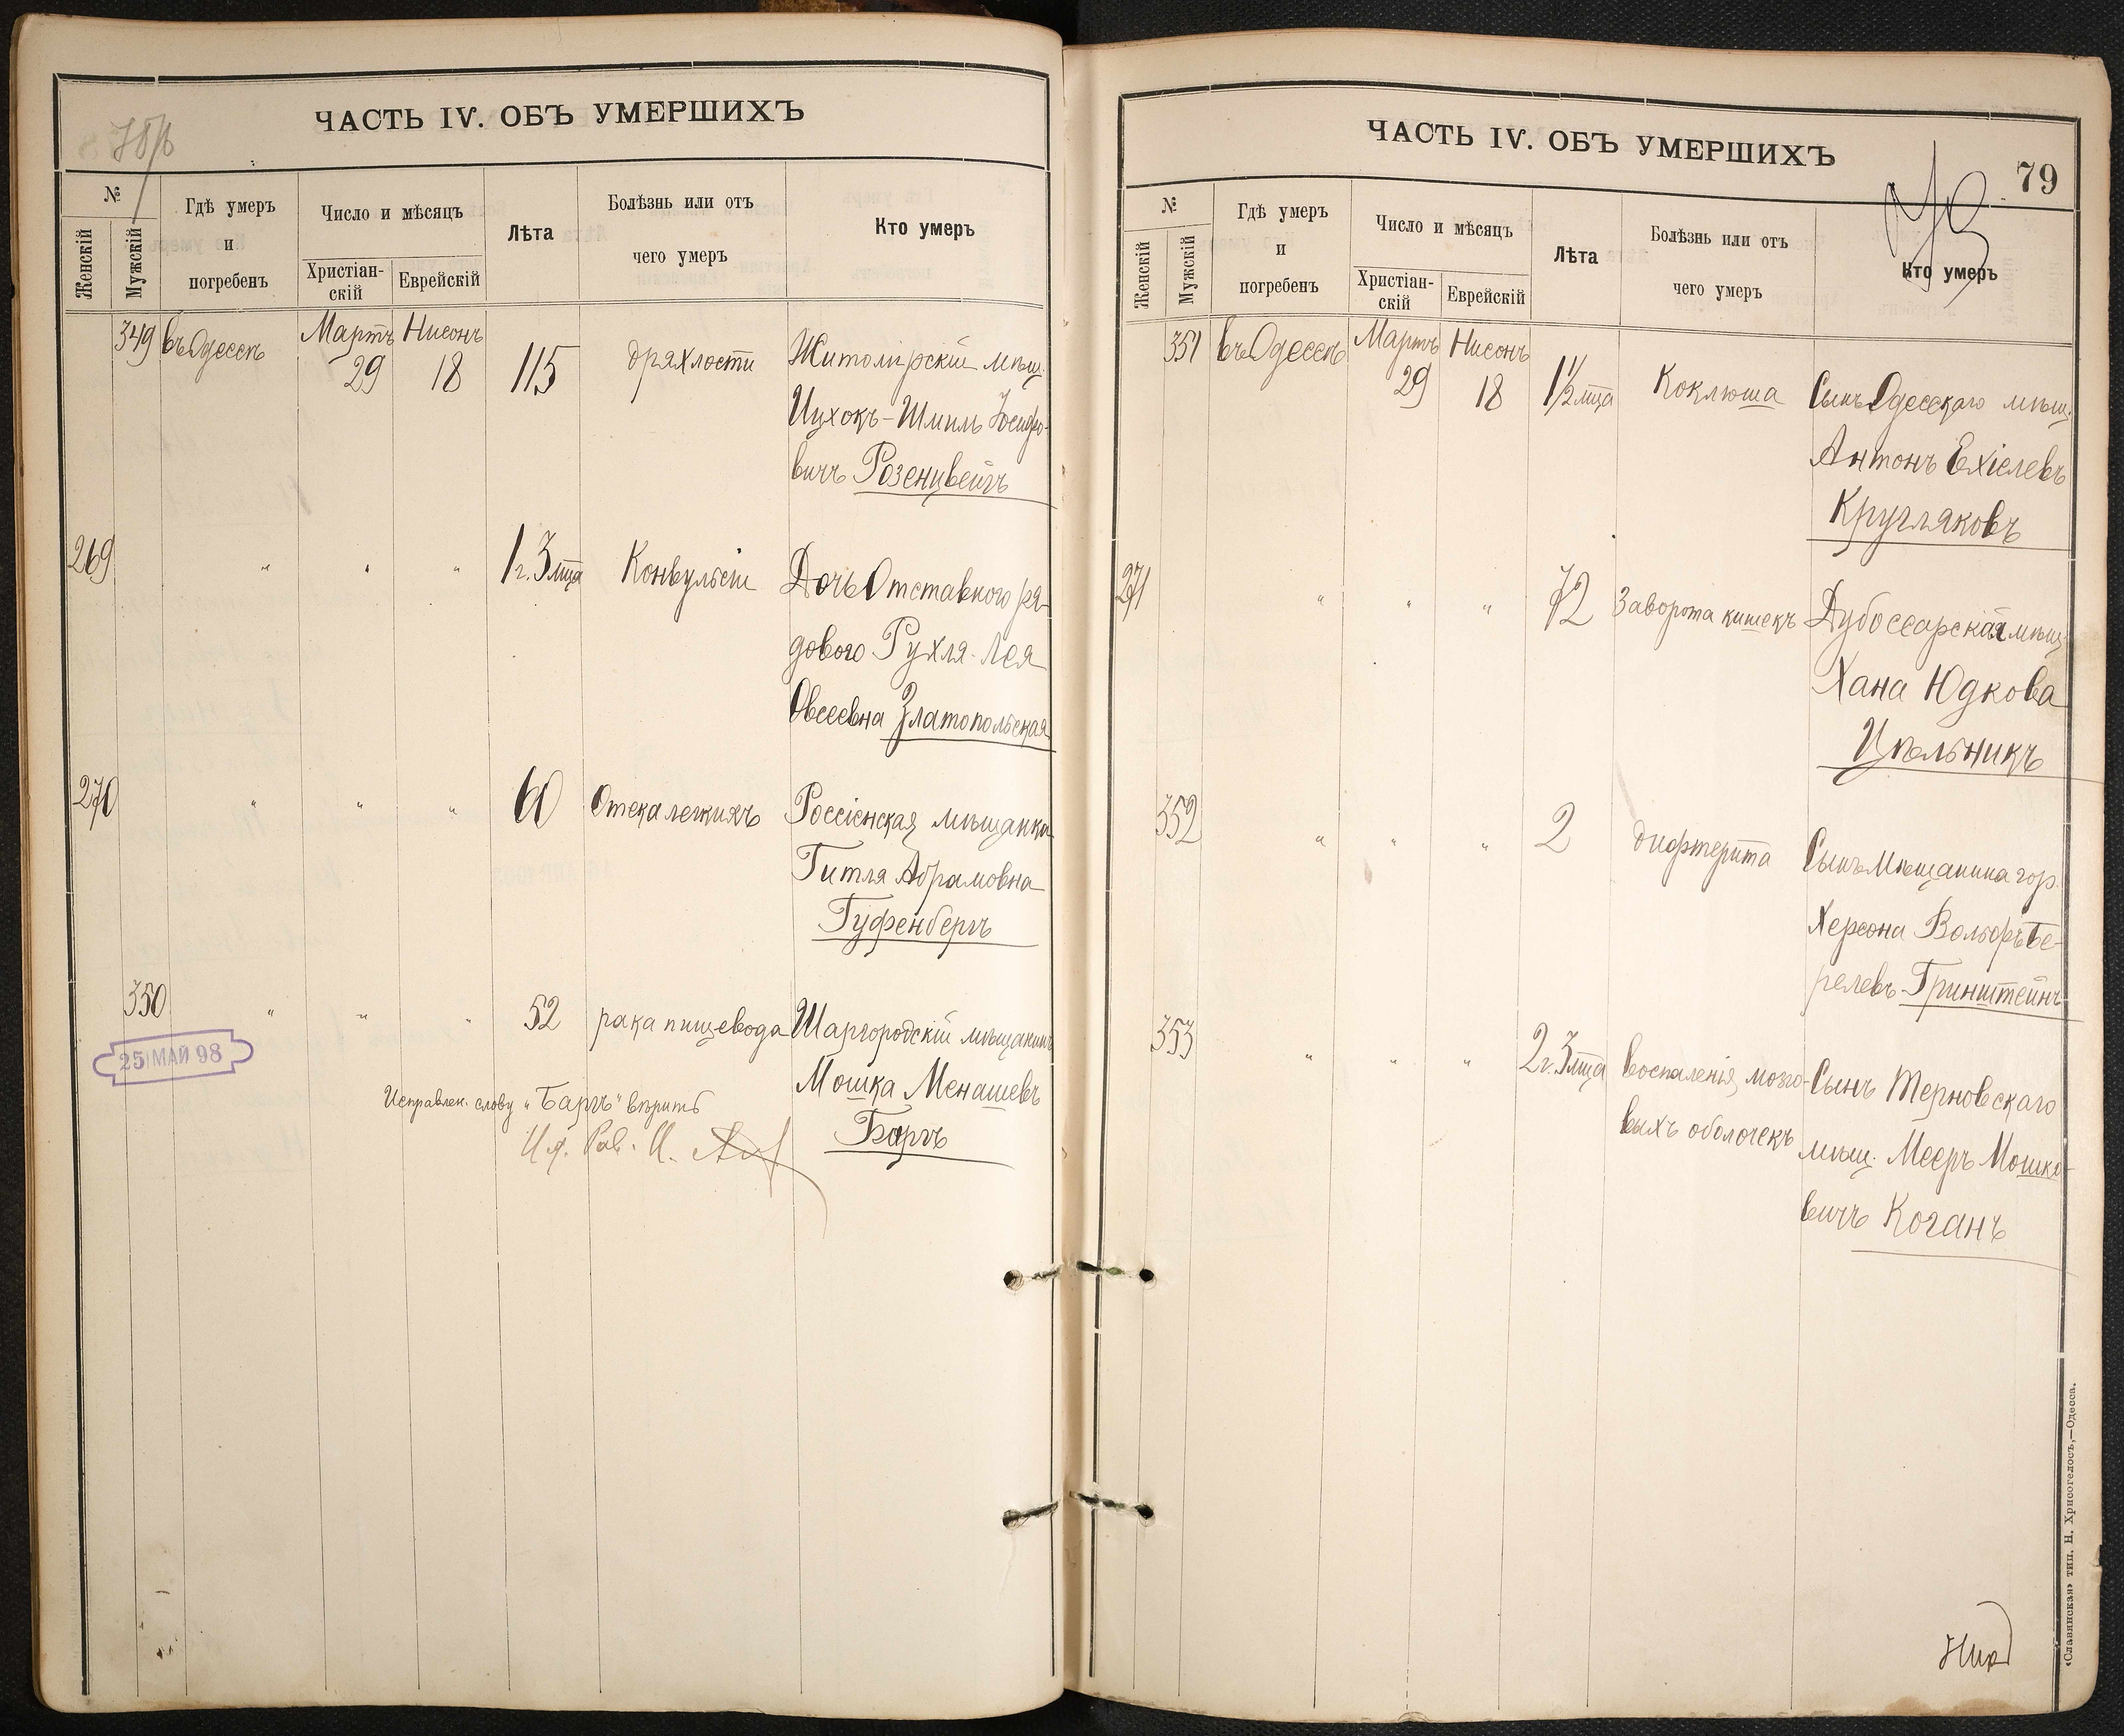 78/б
ЧАСТЬ IV. ОБЪ УМЕРШИХЪ
№
Женскій
Мужскій
Гдѣ умеръ
и
погребенъ
Число и мѣсяцъ
Христіан-
скій
Еврейскій
Лѣта
Болѣзнь или отъ
чего умеръ
Кто умеръ
349 въ Одессѣ Мартъ Нисонъ дряхлости Житомірскій мѣщ.
29 18 115
Ицхокъ-Шмиль Іосифо-
вичъ Розенцвейгъ
269 " " " 1 г. 3 мца Конвульсіи Дочь Отставного ря-
дового Рухля-Лея
Овсеевна Златопольская
270 " " " 60 Отека легкихъ Россіенская мѣщанка
Гитля Абрамовна
Гуфенбергъ
350 " " " 52 рака пищевода Шаргородскій мѣщанинъ
25 МАЙ 98
Мошка Менашевъ
Исправлен. слову „Баргъ" вѣрить
Баргъ
И д. Рав. И.
ЧАСТЬ IV. ОБЪ УМЕРШИХЪ
79
№
Женскій
Мужскій
Гдѣ умеръ
и
погребенъ
Число и мѣсяцъ
Христіан-
скій
Еврейскій
Лѣта
Болѣзнь или отъ
чего умеръ
Кто умеръ
351 въ Одессѣ Мартъ Нисонъ
29 18 1½ мца Коклюша Сынъ Одесскаго мѣщ.
Антонъ Ехіелевъ
Кругляковъ
271 " " " 72 Заворота кишекъ Дубоссарская мѣщ.
Хана Юдкова
Цѣпельникъ
352 " " " 2 дифтерита Сынъ мѣщанина гор.
Херсона Вольфъ Бе-
релевъ Гринштейнъ
353 " " " 2 г. 3 мца воспаленія мозго- Сынъ Терновскаго
выхъ оболочекъ мѣщ. Мееръ Мошко-
вичъ Коганъ
«Славянская» тип. Н. Хрисогелосъ,—Одесса.